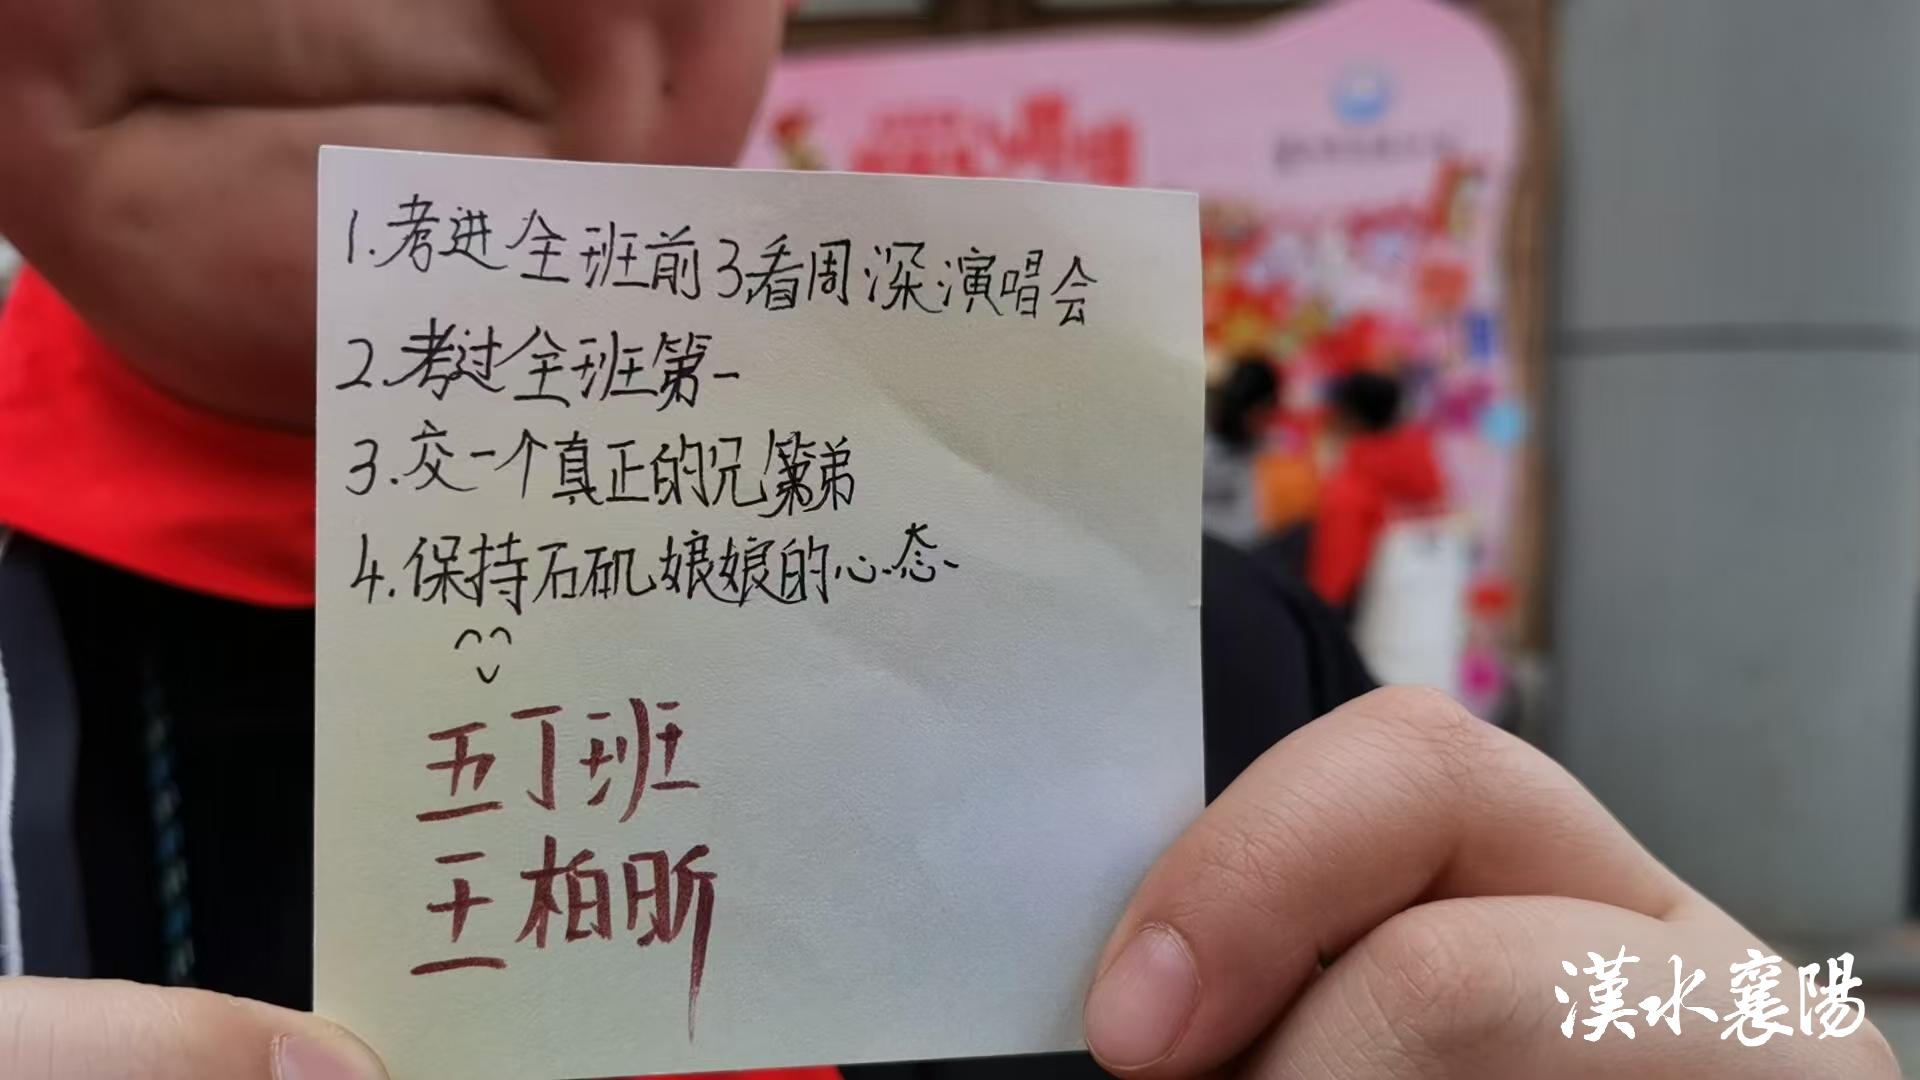 1.考进全班前3看周深演唱会
2.考过全班第一
3.交一个真正的兄弟
4.保持石矶娘娘的心态
五丁班
王柏昕
漢水襄陽